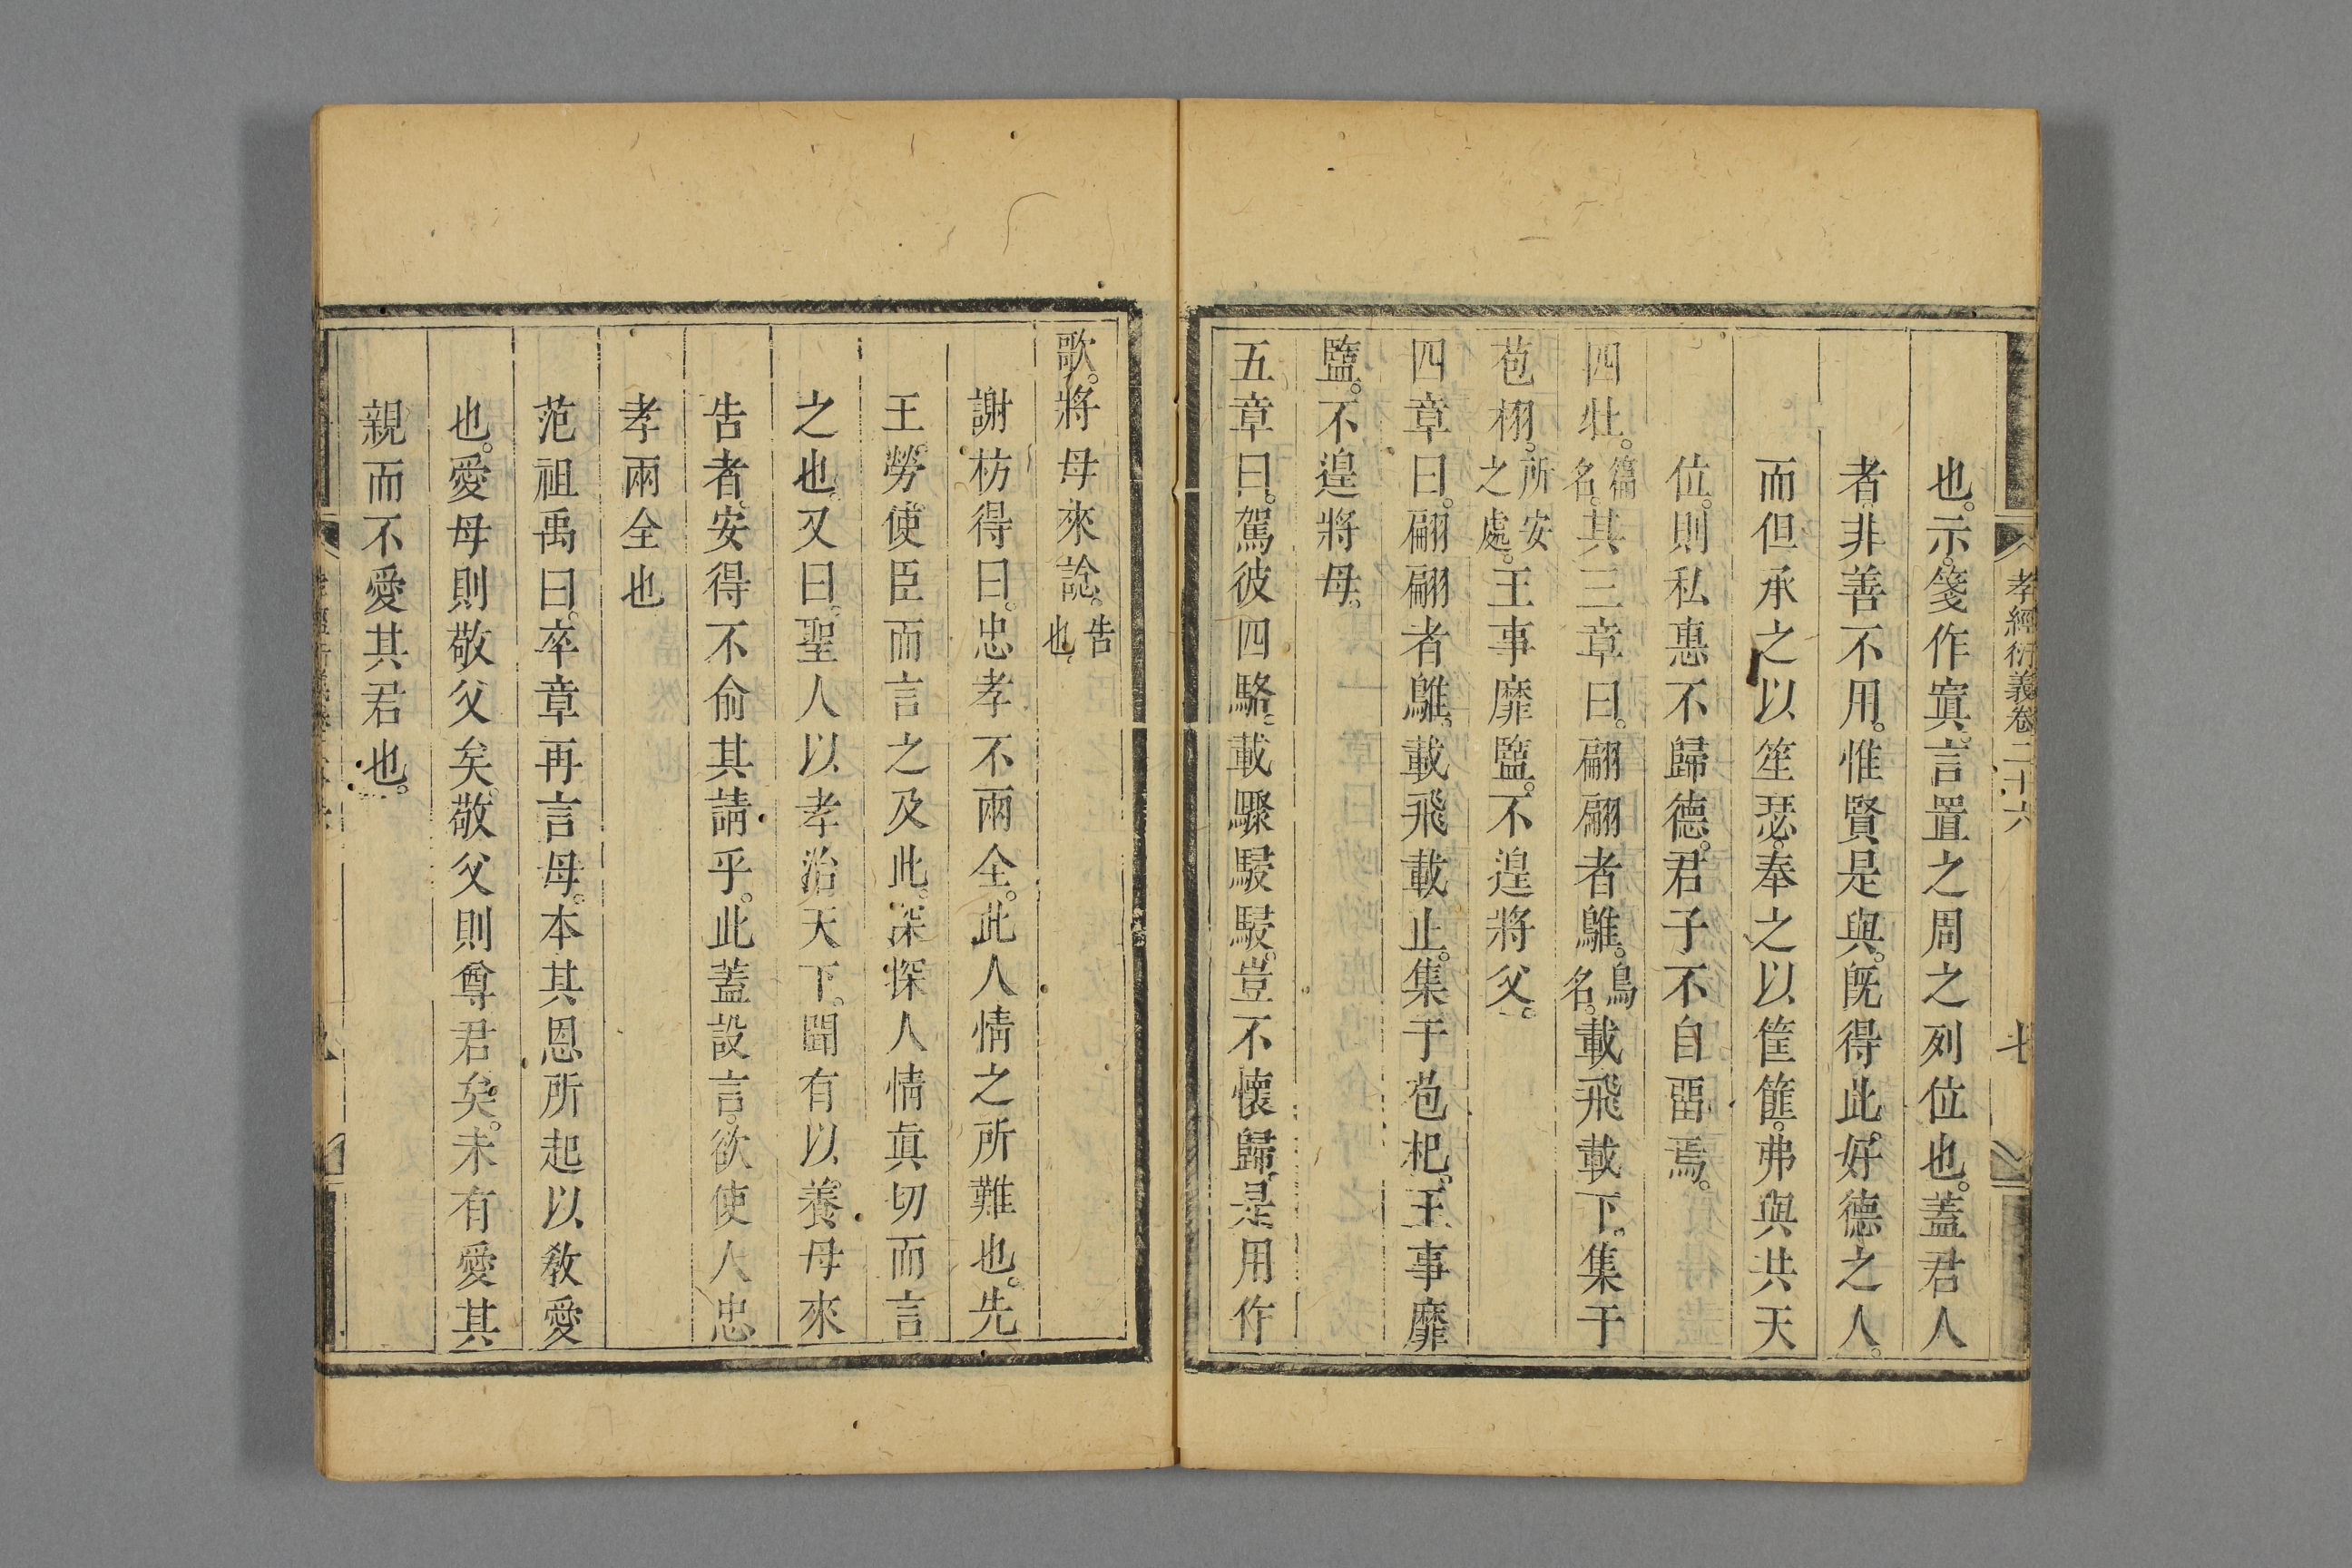 孝經衍義卷二十六
七
也。示。箋作寘。言置之周之列位也。蓋君人
者非善不用。惟賢是與。旣得此好德之人。
而但承之以笙瑟。奉之以筐篚。弗與共天
位。則私惠不歸德。君子不自畱焉。
四牡。篇名。其三章曰。翩翩者鵻。鳥名。載飛載下。集于
苞栩。所安之處。王事靡盬。不遑將父。
四章曰。翩翩者鵻。載飛載止。集于苞杞。王事靡
盬。不遑將母。
五章曰。駕彼四駱。載驟駸駸。豈不懷歸。是用作
歌。將母來諗。告也。
謝枋得曰。忠孝不兩全。此人情之所難也。先
王勞使臣而言之及此。深探人情眞切而言
之也。又曰。聖人以孝治天下。聞有以養母來
告者。安得不俞其請乎。此蓋設言。欲使人忠
孝兩全也
范祖禹曰。卒章再言母。本其恩所起以敎愛
也。愛母則敬父矣。敬父則尊君矣。未有愛其
親而不愛其君也。